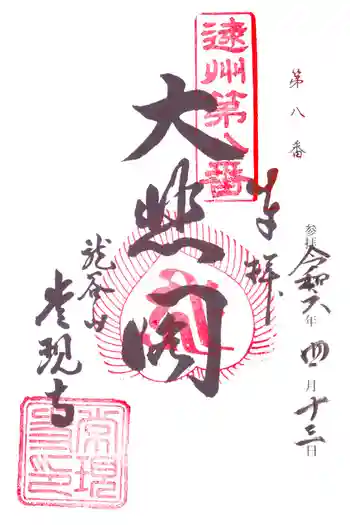 第八番
参拝 令和六年 四月十三日
奉拝
遠州第八番
大悲閣
龍谷山
常現寺
常現寺印